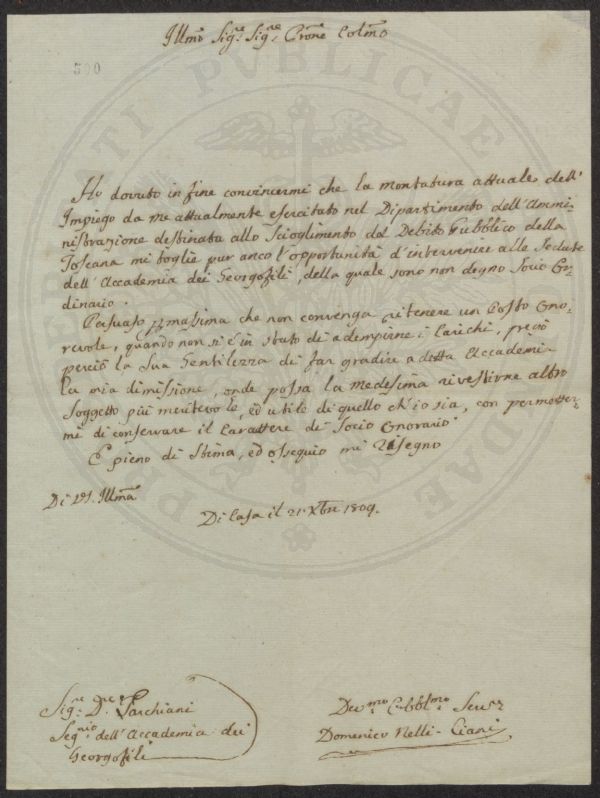 Illmo Sigre Sigre Prone Colmo
500
Ho dovuto in fine convincermi che la montatura attuale dell'
Impiego da me attualmente esercitato nel Dipartimento dell'Ammi-
nistrazione destinata allo Scioglimento del Debito Pubblico della
Toscana mi toglie pur anco l'opportunità d'intervenire alle Sedute
dell'Accademia dei Georgofili, della quale sono non degno Socio Or-
dinario.
Persuaso p massima che non convenga ritenere un Posto Ono-
revole, quando non si è in stato di adempirne i Carichi, prego
perciò la Sua Gentilezza di far gradire a detta Accademi-
la mia dimissione, onde possa la medesima rivestirne altro
Soggetto più meritevole, ed utile di quello ch'io sia, con permetter-
mi di conservare il Carattere di Socio Onorario.
E pieno di Stima, ed ossequio mi rassegno
Di VS. Illma
Di Casa il 21 Xbre 1809.
Sigre Dre Sarchiani
Segrio dell'Accademia dei
Georgofili
Devmo Obblmo Servre
Domenico Nelli-Ciani
PUBLICAE